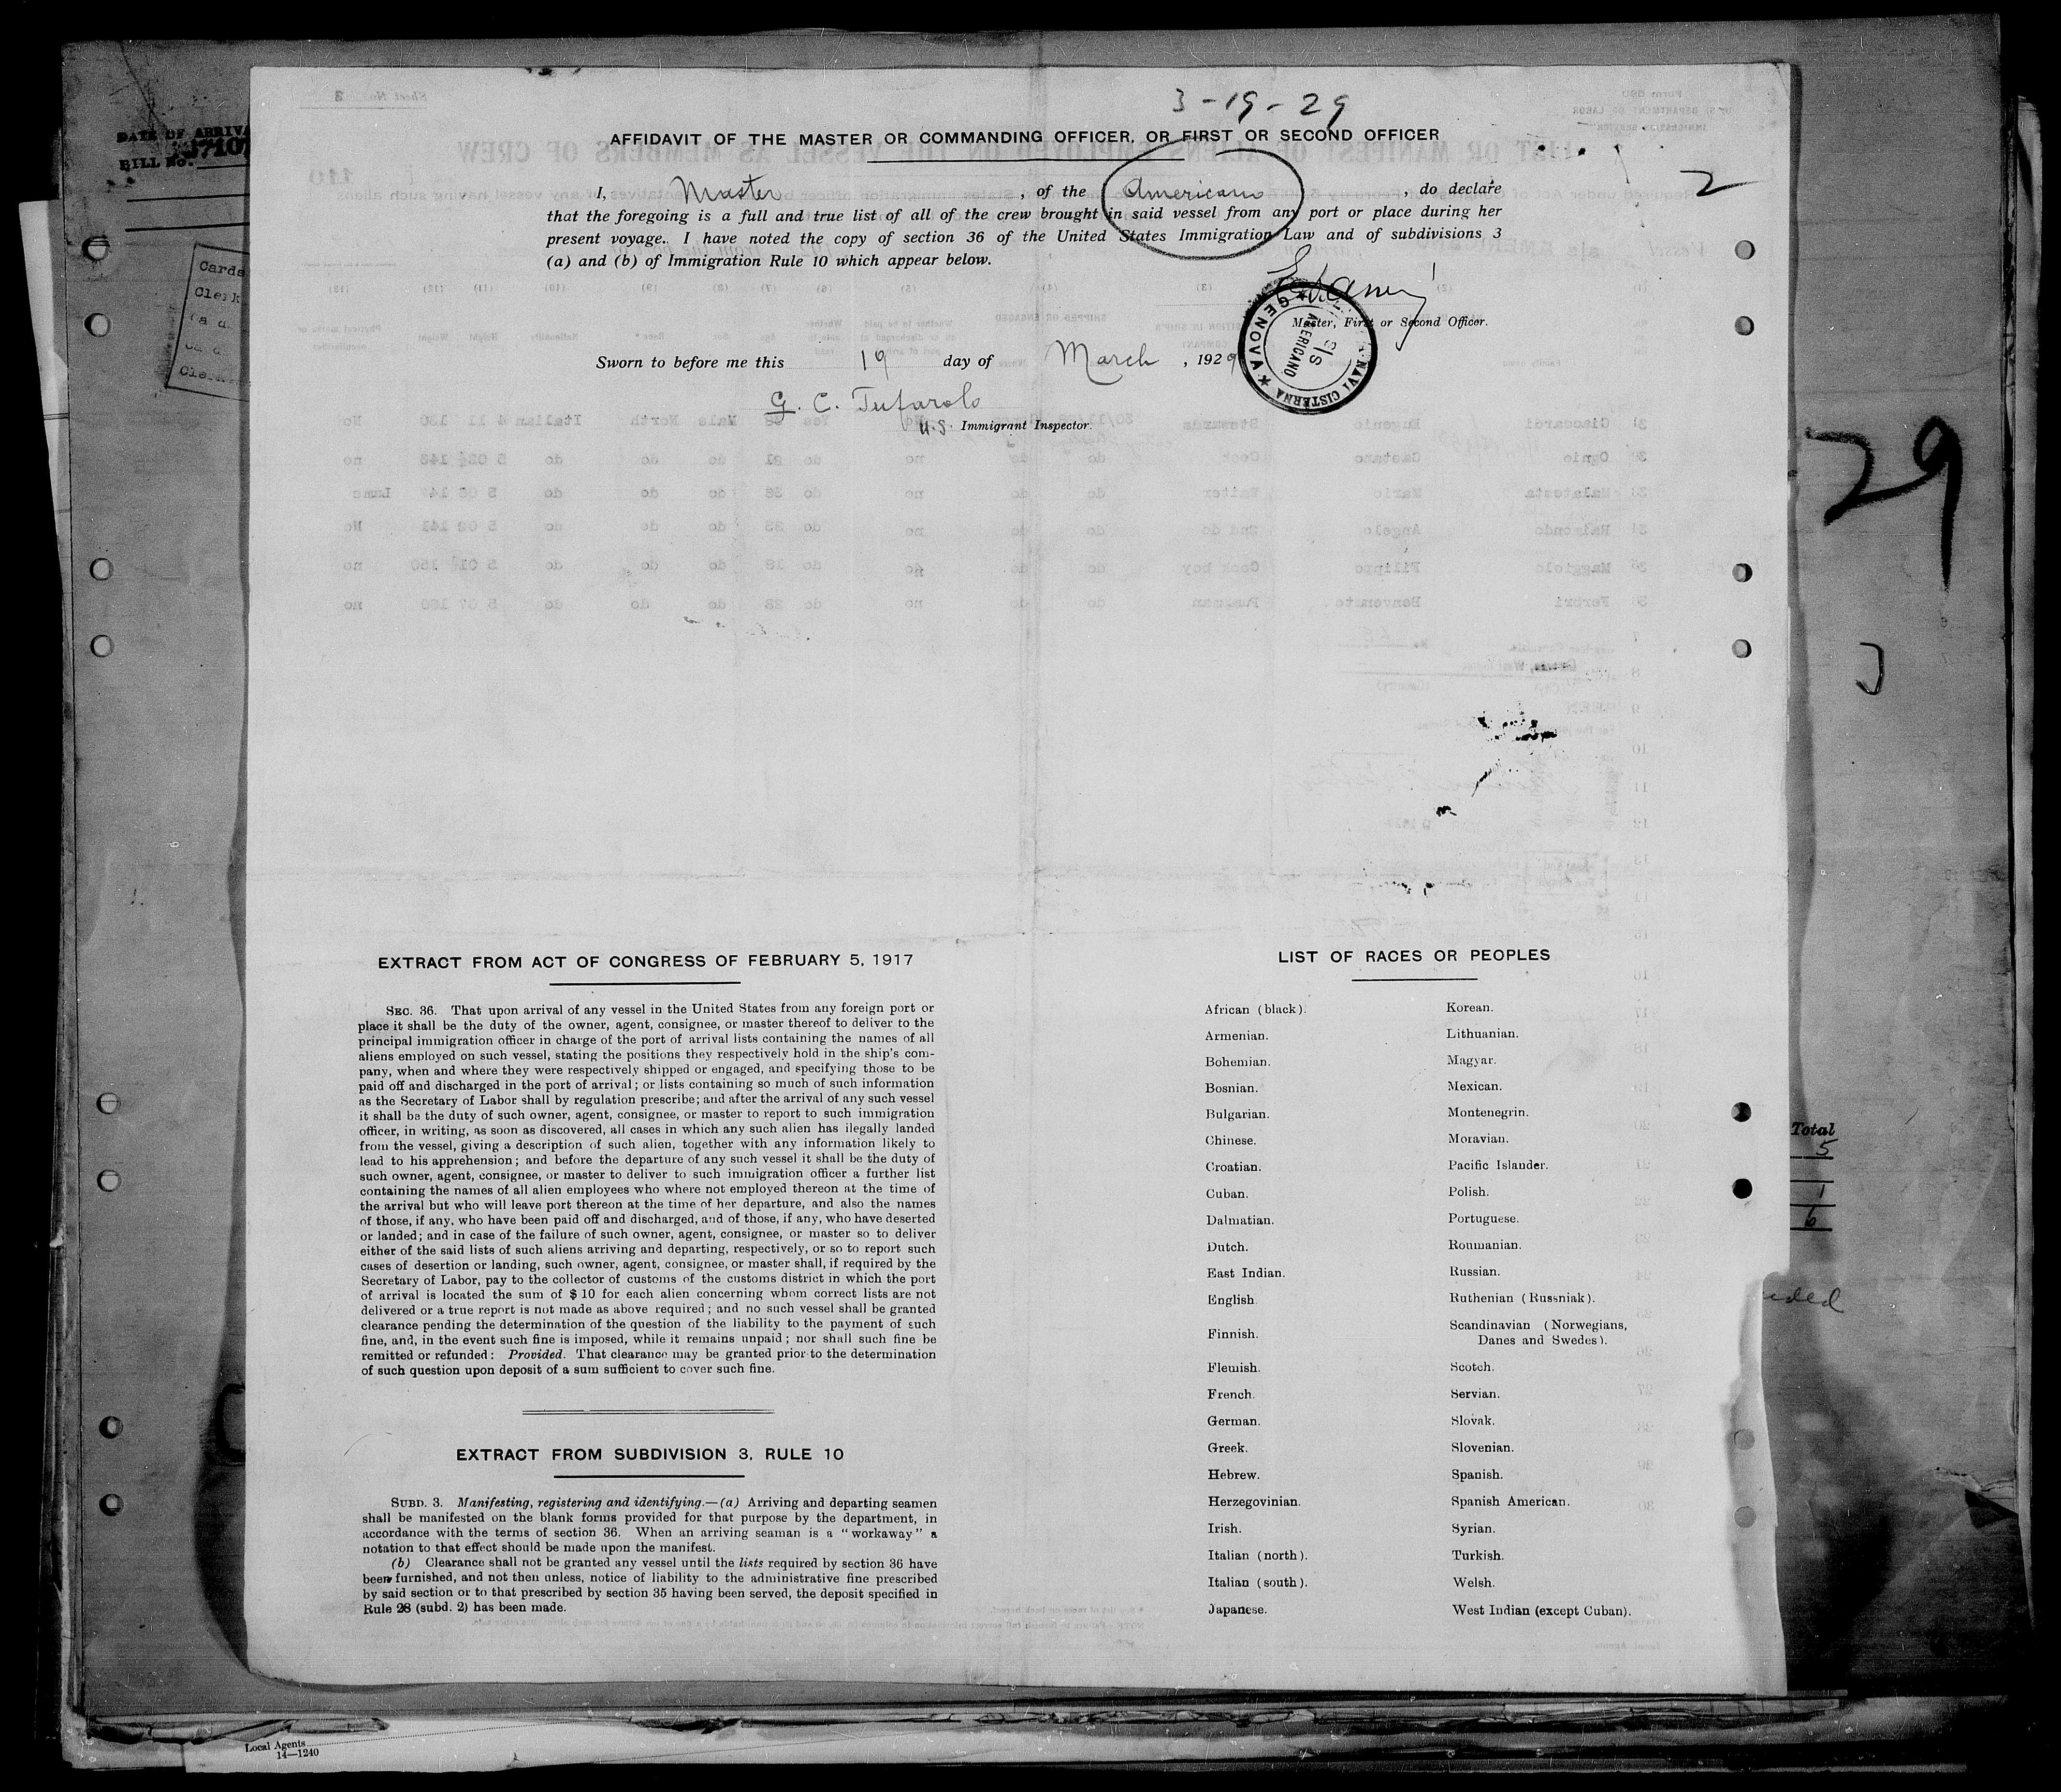 3-19-29
AFFIDAVIT OF THE MASTER OR COMMANDING OFFICER, OR FIRST OR SECOND OFFICER
2
I, Master, of the Americano, do declare
that the foregoing is a full and true list of all of the crew brought in said vessel from any port or place during her
present voyage. I have noted the copy of section 36 of the United States Immigration Law and of subdivisions 3
(a) and (b) of Immigration Rule 10 which appear below.
Master, First or Second Officer.
NAVI CISTERNA ★ GENOVA ★
S/S
AMERICANO
Sworn to before me this 19 day of March, 1929
G. C. Tufarolo
U.S. Immigrant Inspector.
EXTRACT FROM ACT OF CONGRESS OF FEBRUARY 5, 1917
SEC. 36. That upon arrival of any vessel in the United States from any foreign port or
place it shall be the duty of the owner, agent, consignee, or master thereof to deliver to the
principal immigration officer in charge of the port of arrival lists containing the names of all
aliens employed on such vessel, stating the positions they respectively hold in the ship's com-
pany, when and where they were respectively shipped or engaged, and specifying those to be
paid off and discharged in the port of arrival; or lists containing so much of such information
as the Secretary of Labor shall by regulation prescribe; and after the arrival of any such vessel
it shall be the duty of such owner, agent, consignee, or master to report to such immigration
officer, in writing, as soon as discovered, all cases in which any such alien has ilegally landed
from the vessel, giving a description of such alien, together with any information likely to
lead to his apprehension; and before the departure of any such vessel it shall be the duty of
such owner, agent, consignee, or master to deliver to such immigration officer a further list
containing the names of all alien employees who where not employed thereon at the time of
the arrival but who will leave port thereon at the time of her departure, and also the names
of those, if any, who have been paid off and discharged, and of those, if any, who have deserted
or landed; and in case of the failure of such owner, agent, consignee, or master so to deliver
either of the said lists of such aliens arriving and departing, respectively, or so to report such
cases of desertion or landing, such owner, agent, consignee, or master shall, if required by the
Secretary of Labor, pay to the collector of customs of the customs district in which the port
of arrival is located the sum of $10 for each alien concerning whom correct lists are not
delivered or a true report is not made as above required; and no such vessel shall be granted
clearance pending the determination of the question of the liability to the payment of such
fine, and, in the event such fine is imposed, while it remains unpaid; nor shall such fine be
remitted or refunded: Provided. That clearance may be granted prior to the determination
of such question upon deposit of a sum sufficient to cover such fine.
EXTRACT FROM SUBDIVISION 3, RULE 10
SUBD. 3. Manifesting, registering and identifying.—(a) Arriving and departing seamen
shall be manifested on the blank forms provided for that purpose by the department, in
accordance with the terms of section 36. When an arriving seaman is a "workaway" a
notation to that effect should be made upon the manifest.
(b) Clearance shall not be granted any vessel until the lists required by section 36 have
been furnished, and not then unless, notice of liability to the administrative fine prescribed
by said section or to that prescribed by section 35 having been served, the deposit specified in
Rule 28 (subd. 2) has been made.
LIST OF RACES OR PEOPLES
African (black).
Armenian.
Bohemian.
Bosnian.
Bulgarian.
Chinese.
Croatian.
Cuban.
Dalmatian.
Dutch.
East Indian.
English.
Finnish.
Flemish.
French.
German.
Greek.
Hebrew.
Herzegovinian.
Irish.
Italian (north).
Italian (south).
Japanese.
Korean.
Lithuanian.
Magyar.
Mexican.
Montenegrin.
Moravian.
Pacific Islander.
Polish.
Portuguese.
Roumanian.
Russian.
Ruthenian (Russniak).
Scandinavian (Norwegians,
Danes and Swedes).
Scotch.
Servian.
Slovak.
Slovenian.
Spanish.
Spanish American.
Syrian.
Turkish.
Welsh.
West Indian (except Cuban).
DATE OF ARRIVA
BILL NO.
Cards
Clerk
29
Total
5
1
6
Local Agents
14—1240